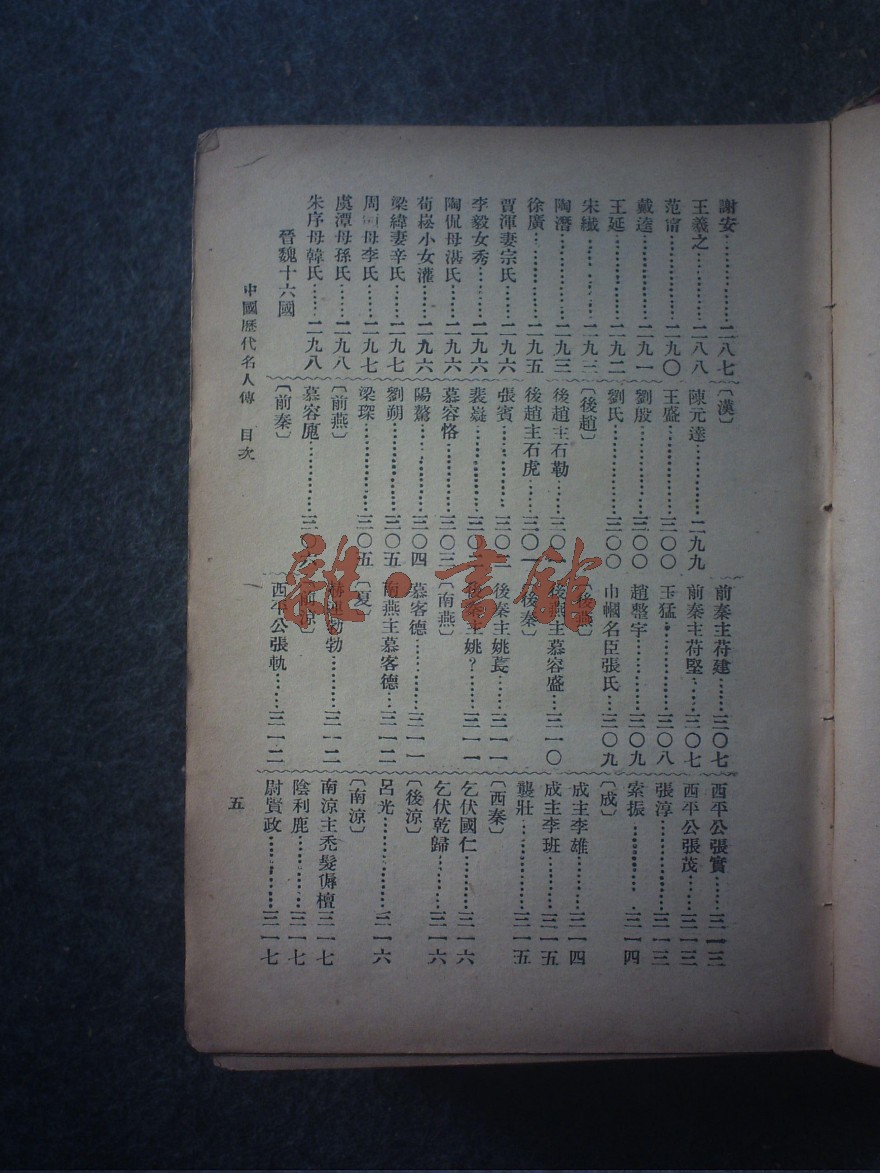 謝安……………二八七
王羲之…………二八八
范甯……………二九〇
戴逵……………二九一
王延……………二九二
宋纖……………二九三
陶潛……………二九三
徐廣……………二九五
賈渾妻宗氏……二九六
李毅女秀………二九六
陶侃母湛氏……二九六
荀崧小女灌……二九六
梁緯妻辛氏……二九七
周母李氏……二九七
虞潭母孫氏……二九八
朱序母韓氏……二九八
晉魏十六國
〔漢〕
陳元達…………二九九
王盛……………三〇〇
劉殷……………三〇〇
劉氏……………三〇〇
〔後趙〕
後趙主石勒……三〇
後趙主石虎……三〇一
張賓……………三〇二
裴嶷……………三〇
慕容恪…………三〇三
陽鶩……………三〇四
劉朔……………三〇五
梁琛……………三〇五
〔前燕〕
慕容廆…………三〇
〔前秦〕
前秦主苻建……三〇七
前秦主苻堅……三〇七
王猛……………三〇八
趙整宇…………三〇九
巾幗名臣張氏…三〇九
〔後燕〕
後燕主慕容盛…三一〇
〔後秦〕
後秦主姚萇……三一一
後秦主姚？……三一一
〔南燕〕
慕客德…………三一一
南燕主慕客德…三一二
〔夏〕
赫連勃勃………三一二
〔前涼〕
西平公張軌……三一二
西平公張實……三一三
西平公張茂……三一三
張淳……………三一三
索振……………三一四
〔成〕
成主李雄………三一四
成主李班………三一五
龔壯……………三一五
〔西秦〕
乞伏國仁………三一六
乞伏乾歸………三一六
〔後涼〕
呂光……………三一六
〔南涼〕
南涼主禿髮傉檀三一七
陰利鹿…………三一七
尉賢政…………三一七
中國歷代名人傳 目次
五
雜·書館